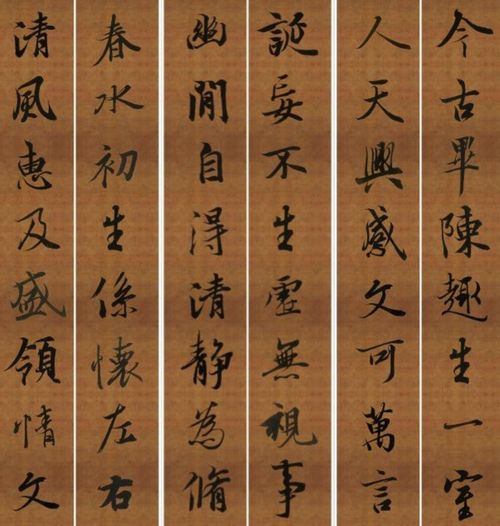 今古畢陳趣生一室
人天興感文可萬言
誕妄不生虛無視事
幽閒自得清靜為脩
春水初生係懷左右
清風惠及盛領情文